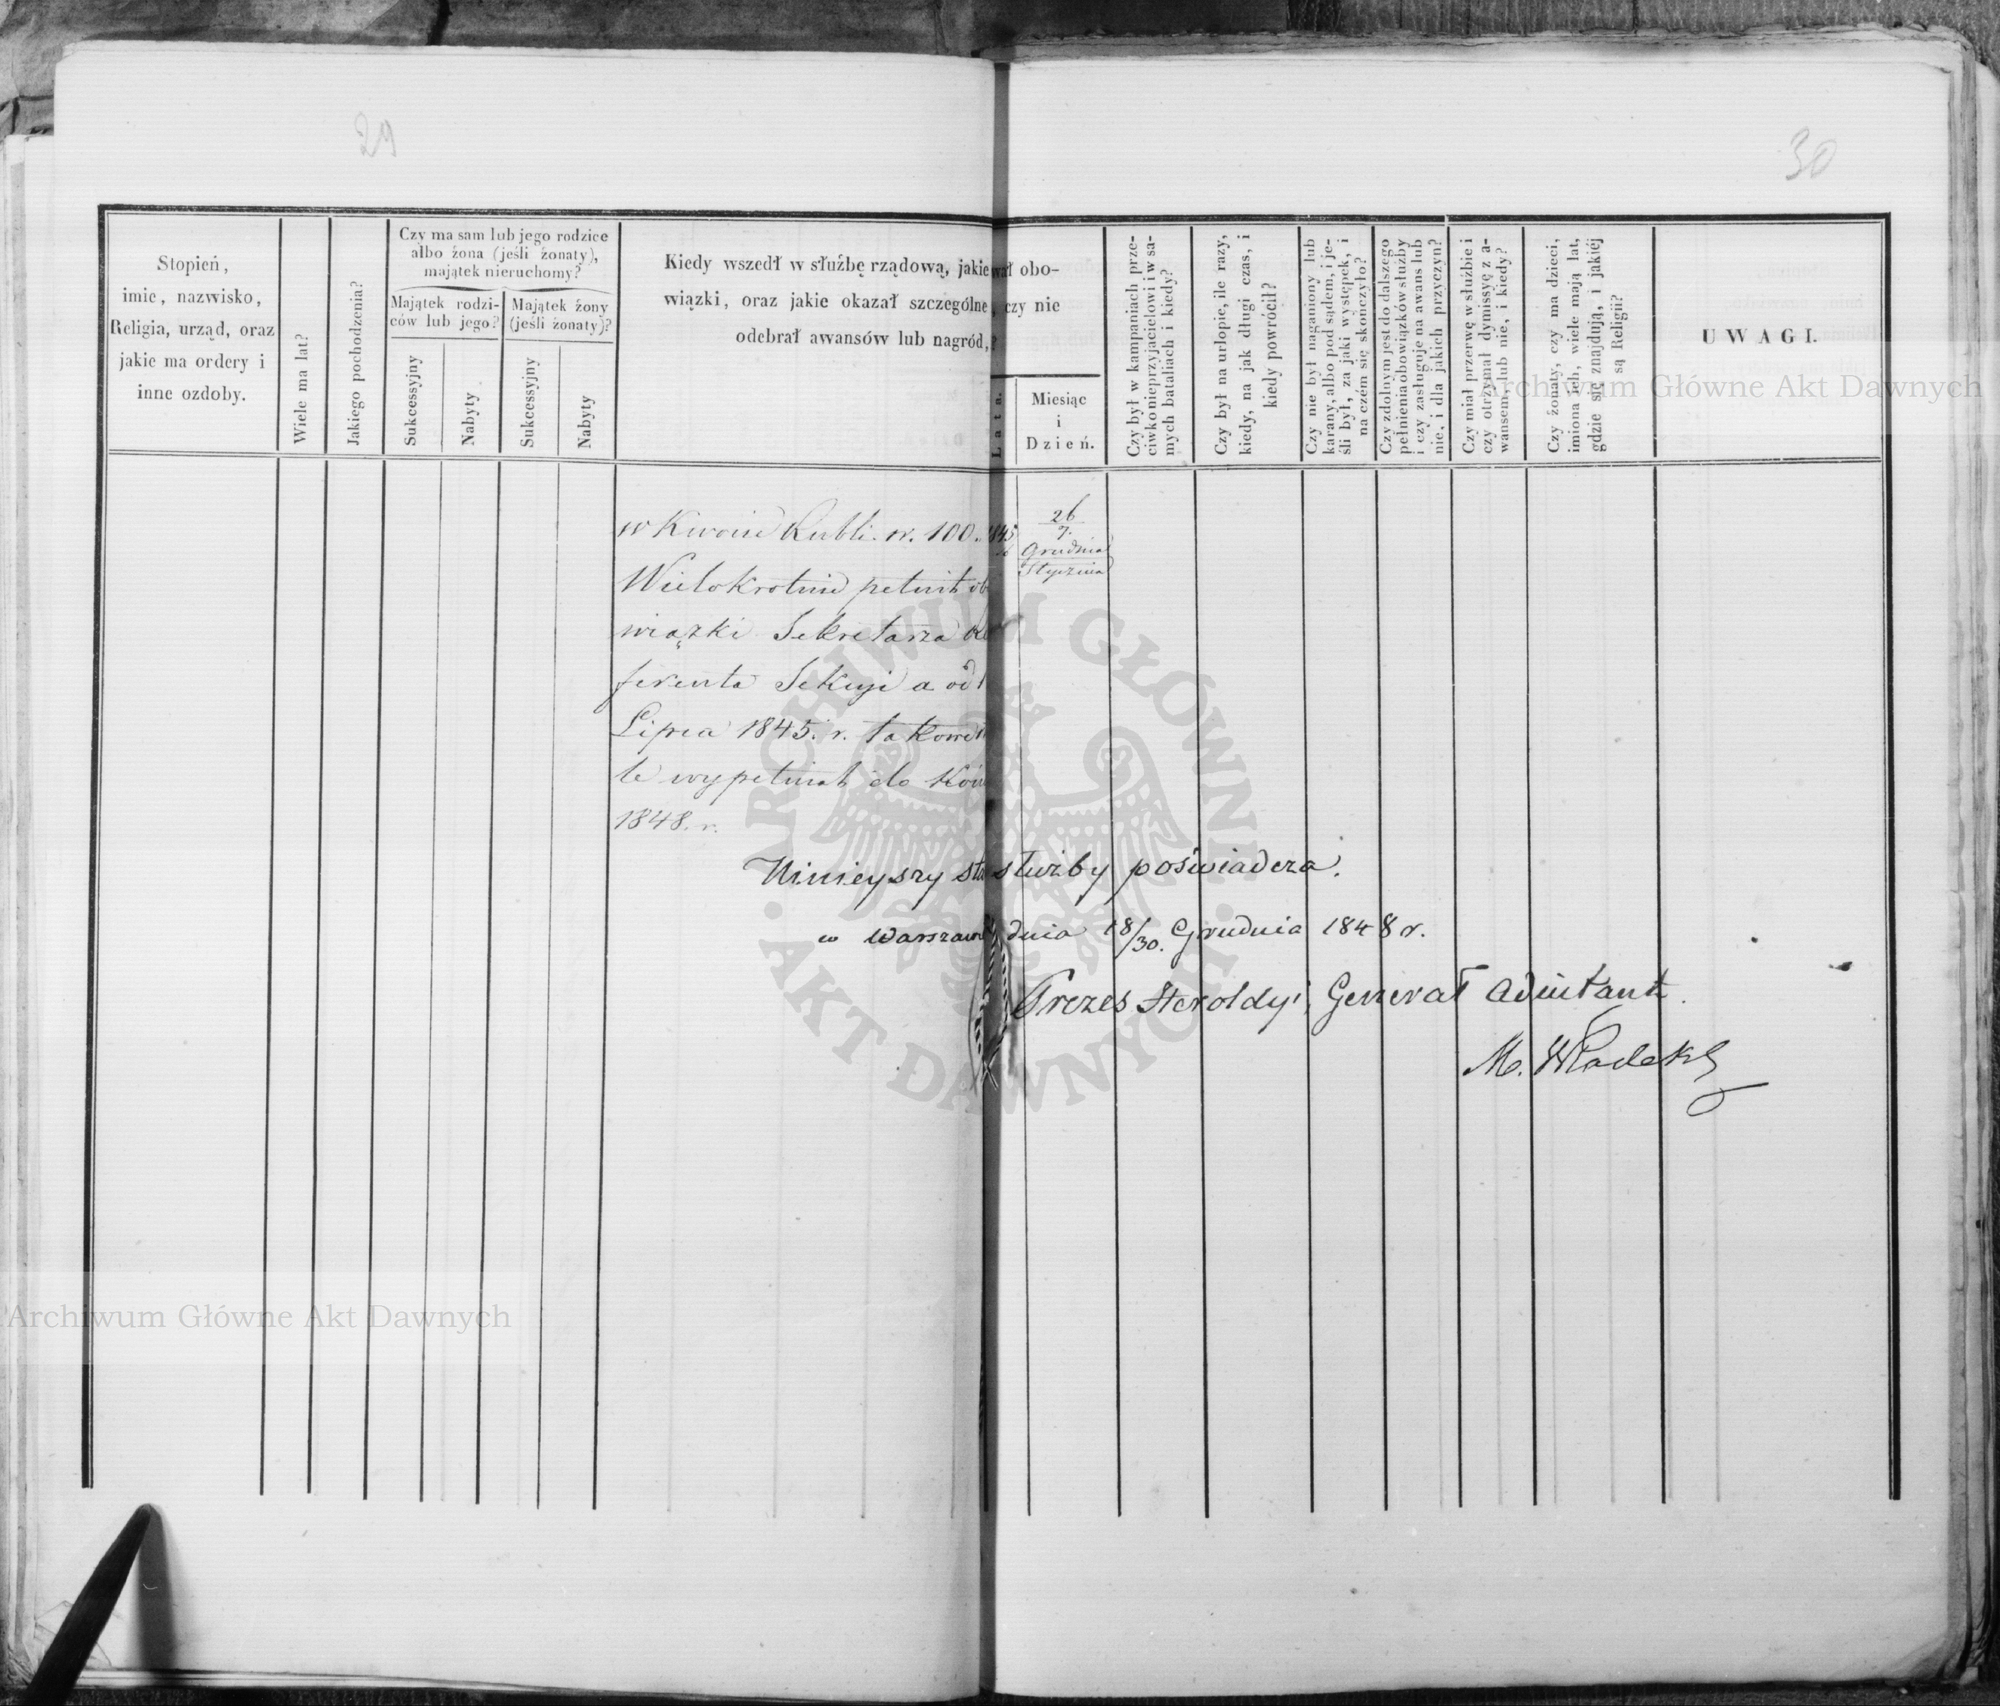 29
30
Stopień,
imie, nazwisko,
Religia, urząd, oraz
jakie ma ordery i
inne ozdoby.
Wiele ma lat?
Jakiego pochodzenia?
Czy ma sam lub jego rodzice
albo żona (jeśli żonaty),
majątek nieruchomy?
Majątek rodzi-
ców lub jego?
Majątek żony
(jeśli żonaty)?
Sukcessyjny
Nabyty
Sukcessyjny
Nabyty
Kiedy wszedł w służbę rządową, jakie wał obo-
wiązki, oraz jakie okazał szczególne, czy nie
odebrał awansów lub nagród,?
Lata.
Miesiąc
i
Dzień.
Czy był w kampaniach prze-
ciwko nieprzyjacielowi i w sa-
mych bataliach i kiedy?
Czy był na urlopie, ile razy,
kiedy, na jak długi czas, i
kiedy powrócił?
Czy nie był naganiony lub
karany, albo pod sądem, i je-
śli był, za jaki występek, i
na czém się skończyło?
Czy zdolnym jest do dalszego
pełnienia obowiązków służby
i czy zasługuje na awans lub
nie, i dla jakich przyczyn?
Czy miał przerwę w służbie i
czy otrzymał dymissyę z a-
wansem, lub nie, i kiedy?
Czy żonaty, czy ma dzieci,
imiona ich, wiele mają lat,
gdzie się znajdują, i jakiéj
są Religii?
UWAGI.
w Kwocie Rubli. sr. 100. 1845
26
7.
Grudnia
Stycznia
Wielokrotnie pełnił obo
wiązki Sekretarza Re
ferenta Sekcyi a od 1
Lipca 1845. r. takowe
le wypełniał do Końca
1848. r.
Ninieyszy stan służby poświadcza.
w Warszawie dnia 18/30. Grudnia 1848 r.
Prezes Heroldyi, Generał Adiutant.
M. Władek
ARCHIWUM GŁÓWNE
AKT DAWNYCH
Archiwum Główne Akt Dawnych
Archiwum Główne Akt Dawnych